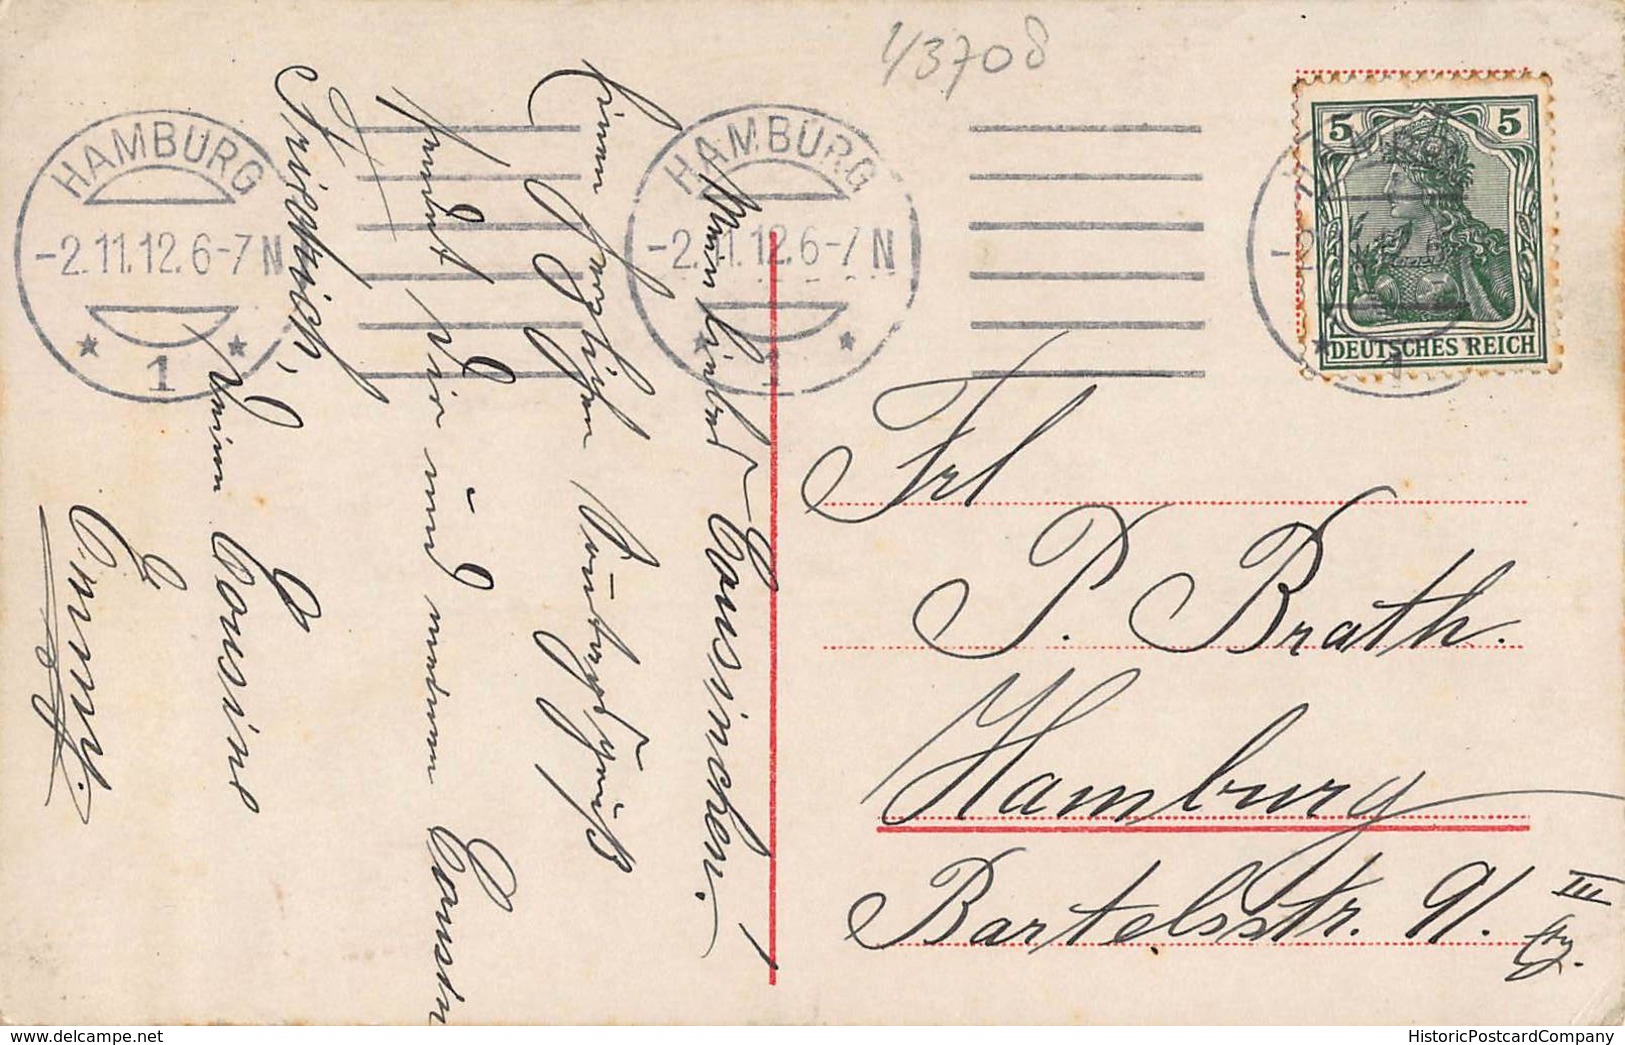 43708
HAMBURG
-2.11.12.6-7N
1
HAMBURG
-2.11.12.6-7N
1
5 5
DEUTSCHES REICH
Mein liebes Cousinchen!
Einen herzlichen Sonntagsgruß
sendet dir und meinem Cousin
Friedrich, Deine Cousine
Emmy.
Frl
P. Brath.
Hamburg
Bartelsstr. 91. III
delcampe.net
HistoricPostcardCompany